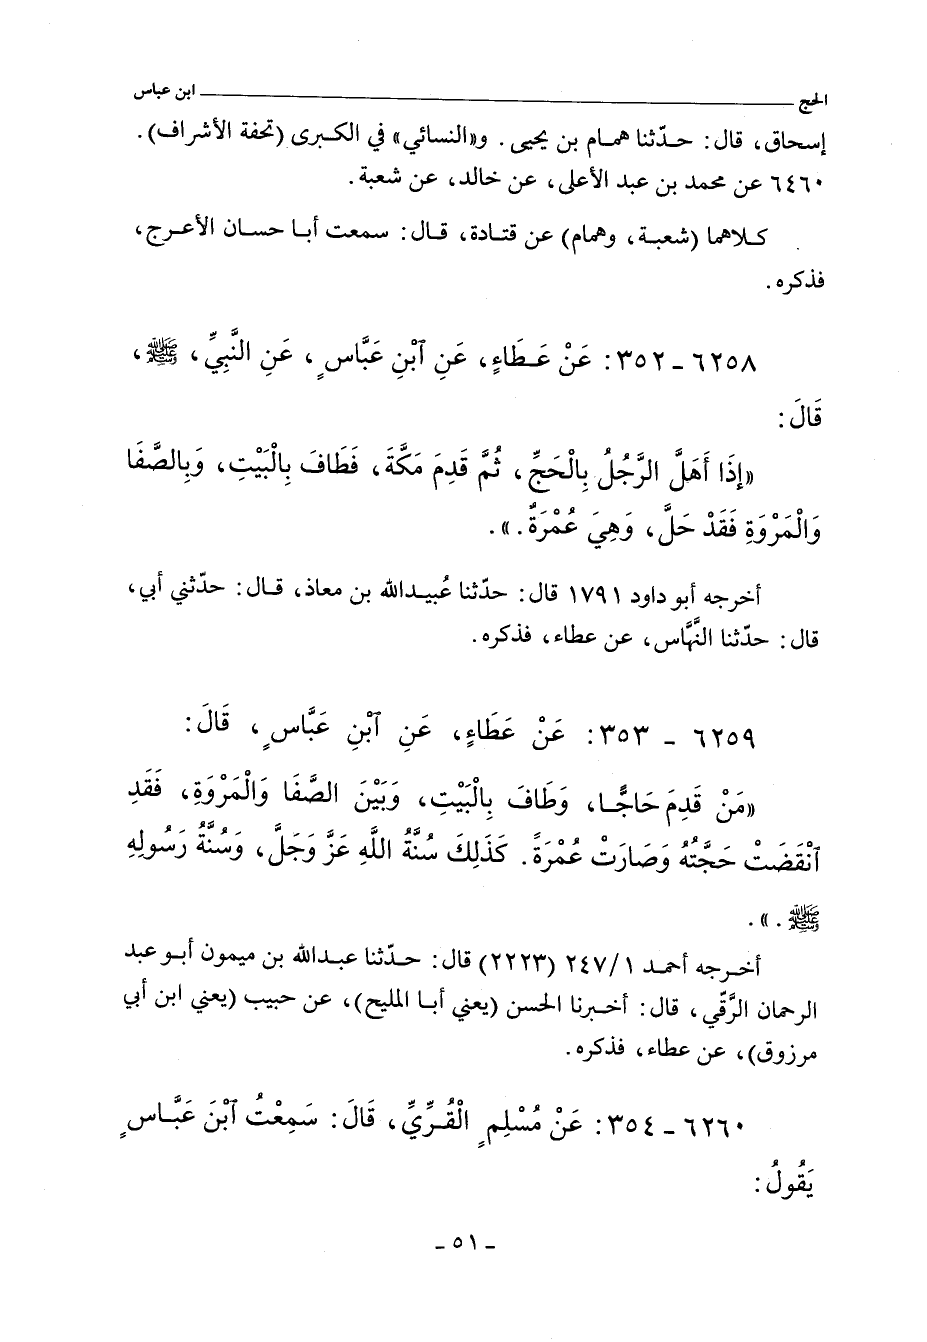 الحج ابن عباس
إسحاق، قال: حدّثنا همام بن يحيى. و«النسائي» في الكبرى (تحفة الأشراف).
٦٤٦٠ عن محمد بن عبد الأعلى، عن خالد، عن شعبة.
كلاهما (شعبة، وهمام) عن قتادة، قال: سمعت أبا حسان الأعرج،
فذكره.
٦٢٥٨ - ٣٥٢: عَنْ عَطَاءٍ، عَنِ ٱبْنِ عَبَّاسٍ، عَنِ النَّبِيِّ، ﷺ،
قَالَ:
«إِذَا أَهَلَّ الرَّجُلُ بِالْحَجِّ، ثُمَّ قَدِمَ مَكَّةَ، فَطَافَ بِالْبَيْتِ، وَبِالصَّفَا
وَالْمَرْوَةِ فَقَدْ حَلَّ، وَهِيَ عُمْرَةٌ.».
أخرجه أبو داود ١٧٩١ قال: حدّثنا عُبيدالله بن معاذ، قال: حدّثني أبي،
قال: حدّثنا النَّهَّاس، عن عطاء، فذكره.
٦٢٥٩ - ٣٥٣: عَنْ عَطَاءٍ، عَنِ ٱبْنِ عَبَّاسٍ، قَالَ:
«مَنْ قَدِمَ حَاجًّا، وَطَافَ بِالْبَيْتِ، وَبَيْنَ الصَّفَا وَالْمَرْوَةِ، فَقَدِ
ٱنْقَضَتْ حَجَّتُهُ وَصَارَتْ عُمْرَةً. كَذَلِكَ سُنَّةُ اللَّهِ عَزَّ وَجَلَّ، وَسُنَّةُ رَسُولِهِ
ﷺ.».
أخرجه أحمد ٢٤٧/١ (٢٢٢٣) قال: حدّثنا عبدالله بن ميمون أبو عبد
الرحمان الرَّقِّي، قال: أخبرنا الحسن (يعني أبا المليح)، عن حبيب (يعني ابن أبي
مرزوق)، عن عطاء، فذكره.
٦٢٦٠ - ٣٥٤: عَنْ مُسْلِمٍ الْقُرِّيِّ، قَالَ: سَمِعْتُ ٱبْنَ عَبَّاسٍ
يَقُولُ:
- ٥١ -